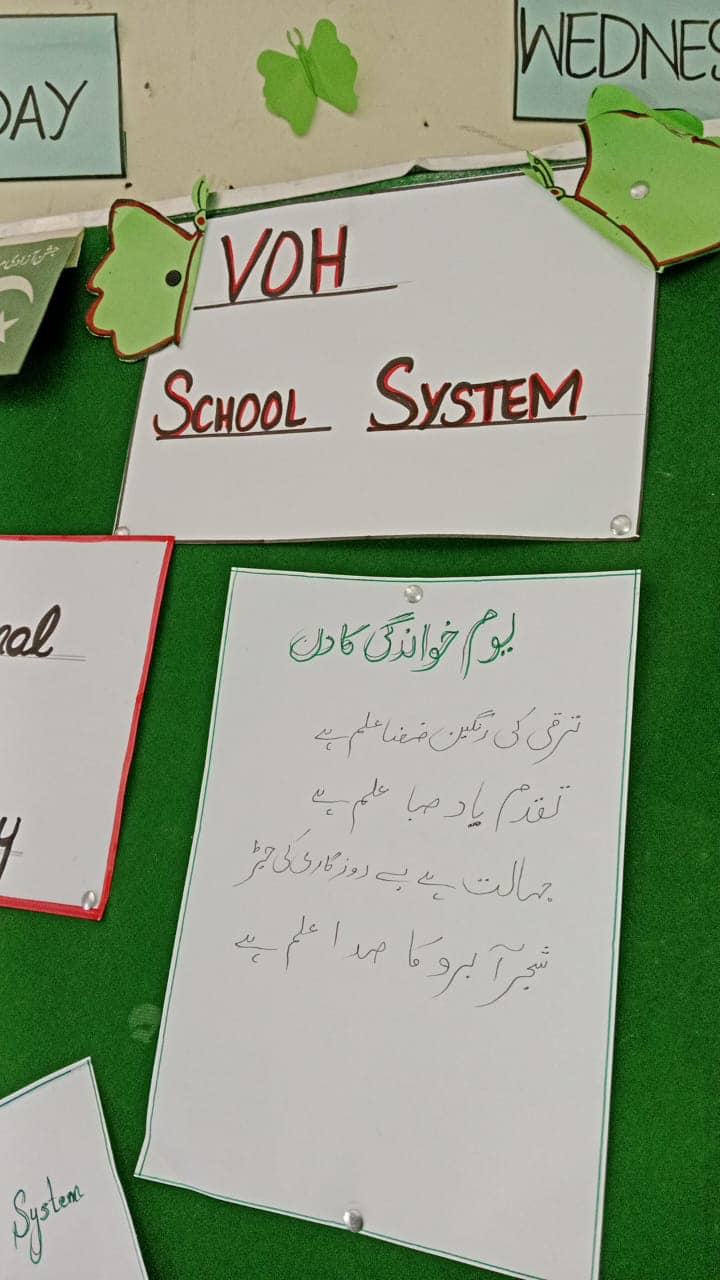 DAY
WEDNES
جشن آزادی
VOH
SCHOOL SYSTEM
nal
y
یوم خواندگی کا دن
ترقی کی رنگین فضا علم ہے
تقدم یاد صبا علم ہے
جہالت ہے بے روزگاری کی جڑ
شجر آبرو کا صدا علم ہے
System